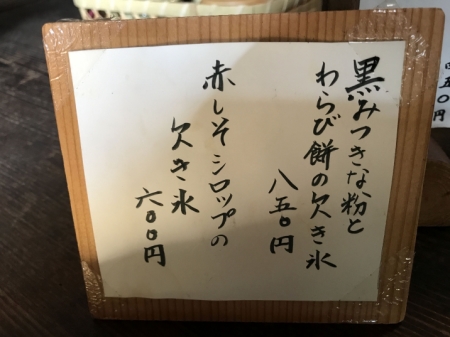 黒みつきな粉と
わらび餅の欠き氷
八五〇円
赤しそシロップの
欠き氷
六〇〇円
五〇円